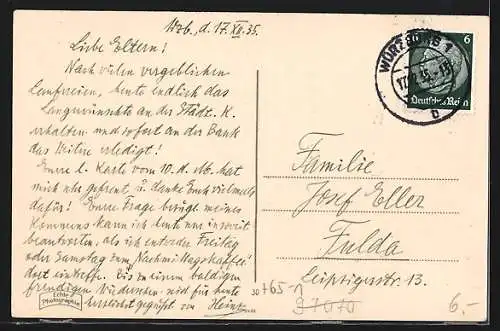 Wzb., d. 17. XII. 35.
Liebe Eltern!
Nach vielen vergeblichen
heute endlich das
Langersehnte an der Städt. K.
erhalten und sofort an der Bank
das Weitere erledigt!
Eure l. Karte vom 10. d. Mts. hat
mich sehr gefreut, u. danke Euch vielmals
dafür! Eure Frage bezügl. meines
Kommens kann ich heute nur insoweit
beantworten, als ich entweder Freitag
oder Samstag zum Nachmittagskaffee
dort eintreffe. Bis zu einem baldigen
freudigen Wiedersehen seid für heute
herzlichst gegrüßt von Heinz
Echte
Photographie
WÜRZBURG 1
17.12.35
b
6
Deutsches Reich
Familie
Josef Eller
Fulda
Leipzigerstr. 13.
6.-